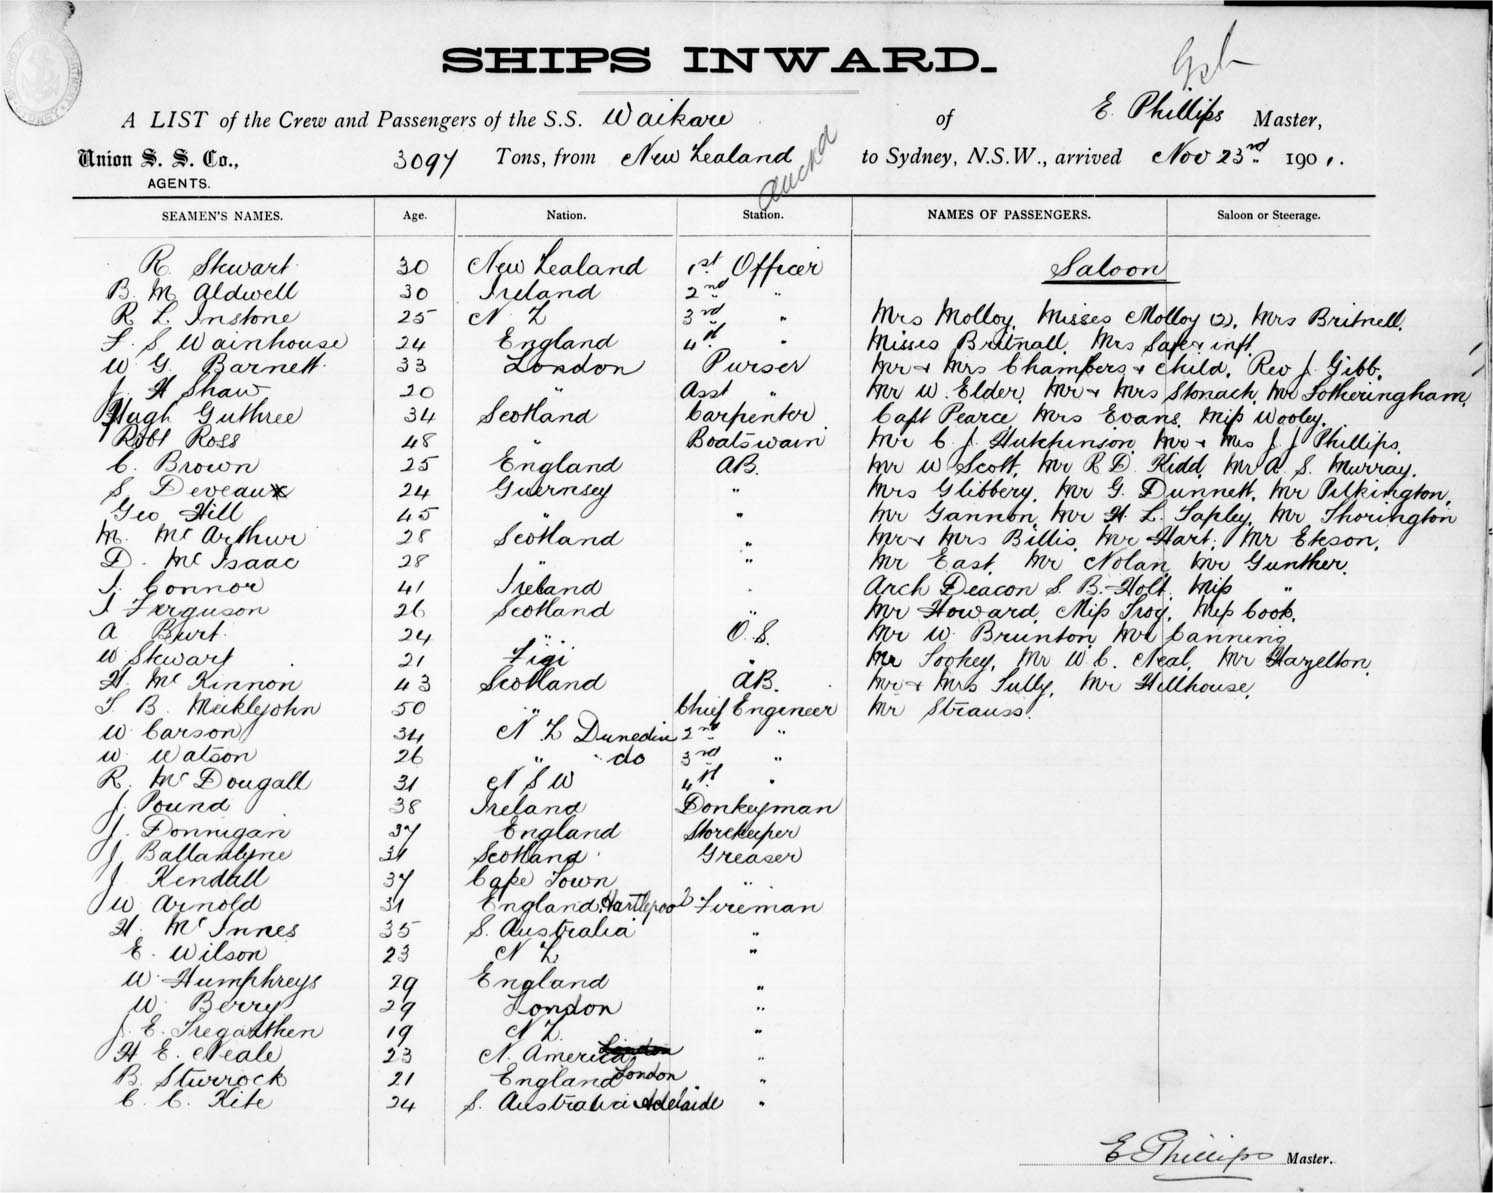 SHIPS INWARD.
A LIST of the Crew and Passengers of the S.S. Waikare of E. Phillips Master,
Union S. S. Co., 3097 Tons, from New Zealand to Sydney, N.S.W., arrived Nov 23rd 1901.
AGENTS.
Auckd
SEAMEN'S NAMES. Age. Nation. Station. NAMES OF PASSENGERS. Saloon or Steerage.
R. Stewart 30 New Zealand 1st Officer Saloon
B. M. Aldwell 30 Ireland 2nd "
R L. Instone 25 N Z 3rd " Mrs Molloy, Misses Molloy (2), Mrs Britnell,
F. S Wainhouse 24 England 4th " Misses Britnall, Mrs & inft
W G. Barnett 33 London Purser Mr & Mrs Chambers & child, Rev J. Gibb,
J. H Shaw 20 " Asst " Mr W. Elder, Mr & Mrs Stonach, Mr Fotheringham,
Hugh Guthree 34 Scotland Carpenter Capt Pearce, Mrs Evans, Miss Wooley,
Robt Ross 48 " Boatswain Mr C. J. Hutchinson, Mr & Mrs J. J Phillips,
C. Brown 25 England AB. Mr W Scott, Mr R D. Kidd, Mr A. S. Murray,
S Deveaux 24 Guernsey " Mrs Glibbery, Mr G. Dunnett, Mr Pilkington,
Geo Hill 45 " " Mr Gannon, Mr H L. Tapley, Mr Thorington
M. McArthur 28 Scotland " Mr & Mrs Billis, Mr Hart, Mr Ekson,
D. McIsaac 28 " " Mr East, Mr Nolan, Mr Gunther,
J. Connor 41 Ireland " Arch Deacon S. B. Holt, Miss "
J Ferguson 26 Scotland " Mr Howard, Miss Troy, Miss Cook,
A Burt 24 " O.S. Mr W. Brunton, Mr Canning
W Stewart 21 Figi " Mr Tookey, Mr W. C. Neal, Mr Hazelton,
H. McKinnon 43 Scotland AB. Mr & Mrs Tully, Mr Hillhouse,
T B. Meiklejohn 50 " Chief Engineer Mr Strauss.
W Carson 34 N Z Dunedin 2nd "
W Watson 26 " do 3rd "
R. McDougall 31 N S W 4th "
J. Pound 38 Ireland Donkeyman
J. Donnigan 37 England Storekeeper
J Ballantyne 31 Scotland Greaser
J. Kendall 37 Cape Town "
W Arnold 31 England, Hartlepool Fireman
H. McInnes 35 S. Australia "
E. Wilson 23 N Z "
W. Humphreys 29 England "
W. Berry 29 London "
J. E. Tregarthen 19 N Z. "
H E. Neale 23 N. America London "
B. Sturrock 21 England London "
C. C. Kite 24 S. Australia Adelaide "
E Phillips Master.